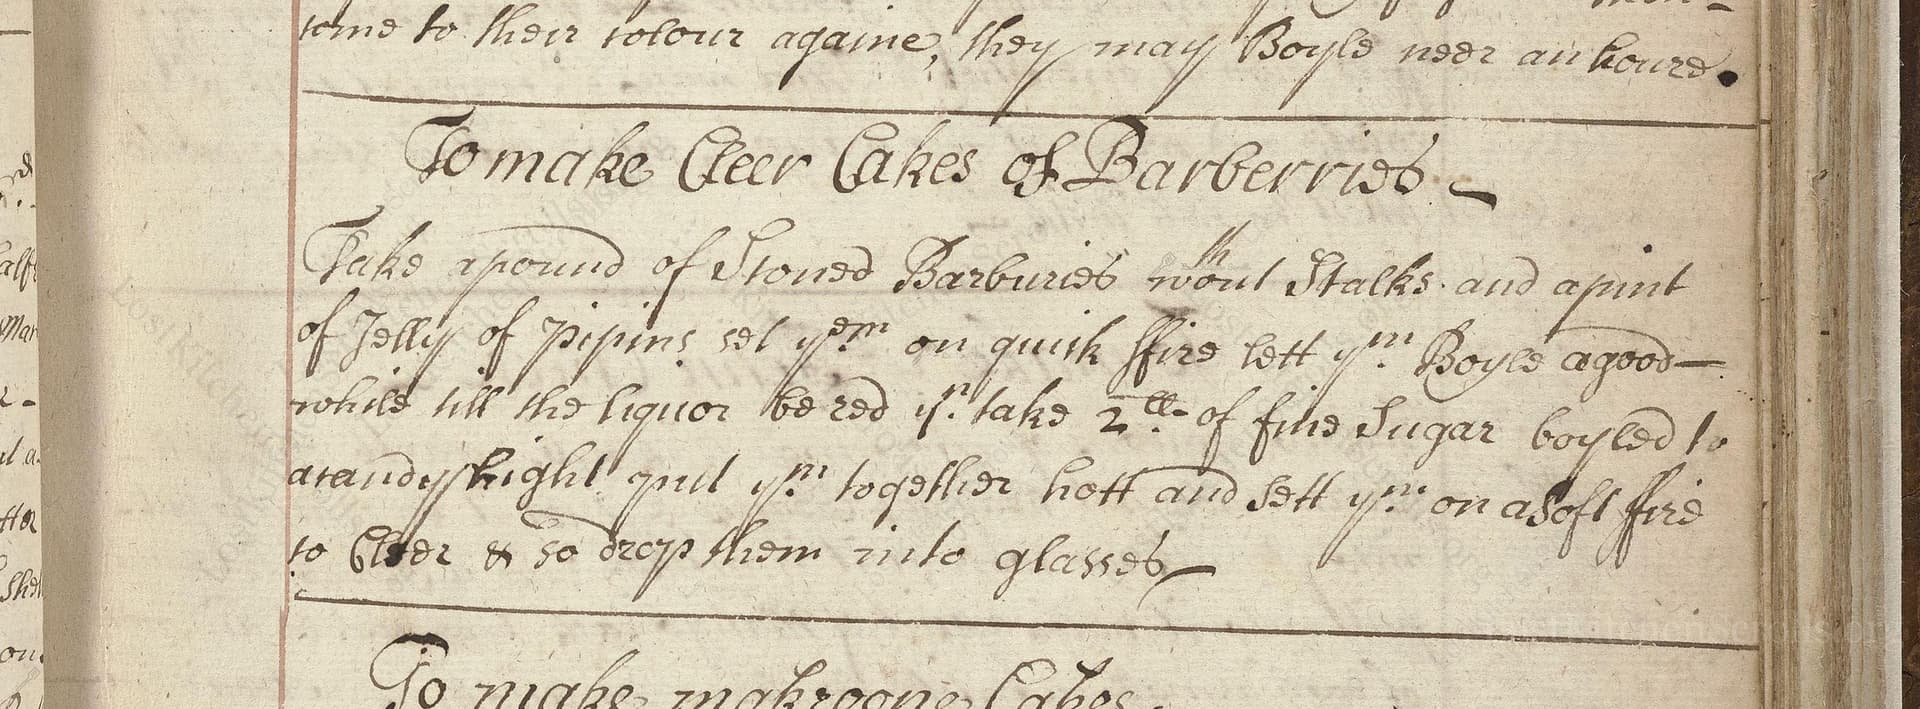 come to their colour againe, they may Boyle neer an houre.
To make Cleer Cakes of Barberries
Take a pound of Stoned Barburies wthout Stalks and a pint
of Jelly of pipins set yem on quick ffire lett ym Boyle a good
while till the liquor be red yn take 2ll of fine Sugar boyled to
a candy hight put ym together hott and sett ym on a soft ffire
to Cleer & so drop them into glasses
To make makroone Cakes